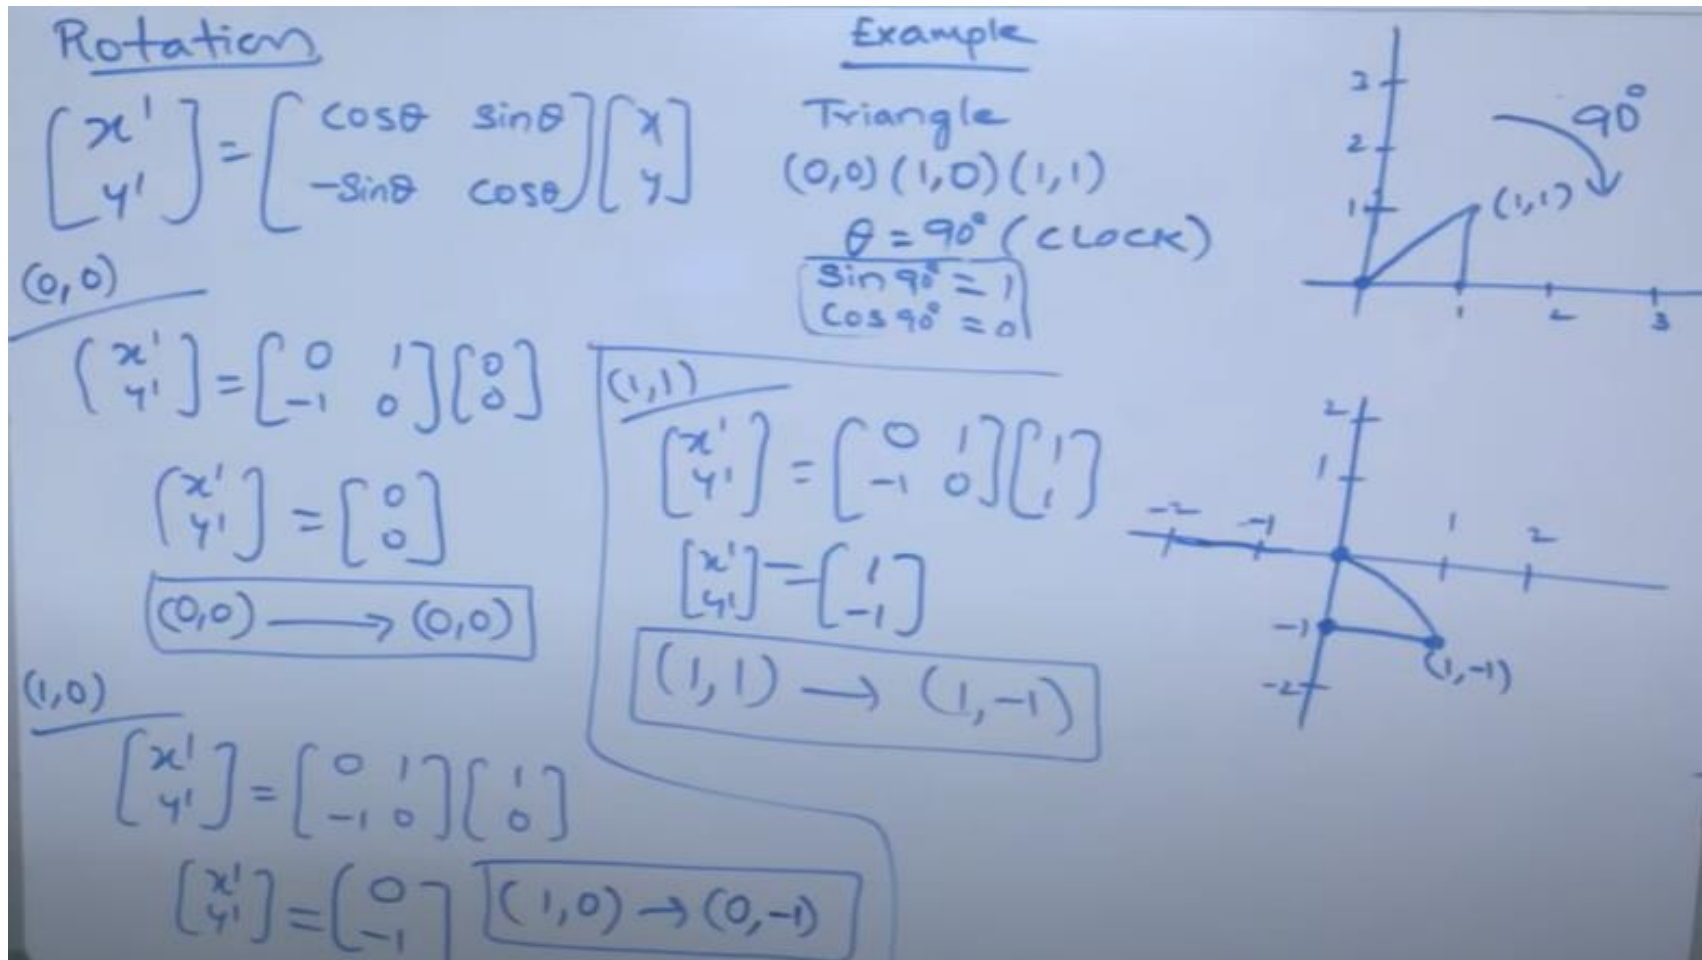 Rotation
[x' y'] = [cosθ sinθ -sinθ cosθ] [x y]
(0,0)
[x' y'] = [0 1 -1 0] [0 0]
[x' y'] = [0 0]
(0,0) → (0,0)
(1,0)
[x' y'] = [0 1 -1 0] [1 0]
[x' y'] = [0 -1]
(1,0) → (0,-1)
Example
Triangle
(0,0) (1,0) (1,1)
θ = 90° (CLOCK)
Sin 90° = 1
Cos 90° = 0
(1,1)
[x' y'] = [0 1 -1 0] [1 1]
[x' y'] = [1 -1]
(1,1) → (1,-1)
3
90°
2
1 (1,1)
1 2 3
2
1
-2 -1 1 2
-1
(1,-1)
-2